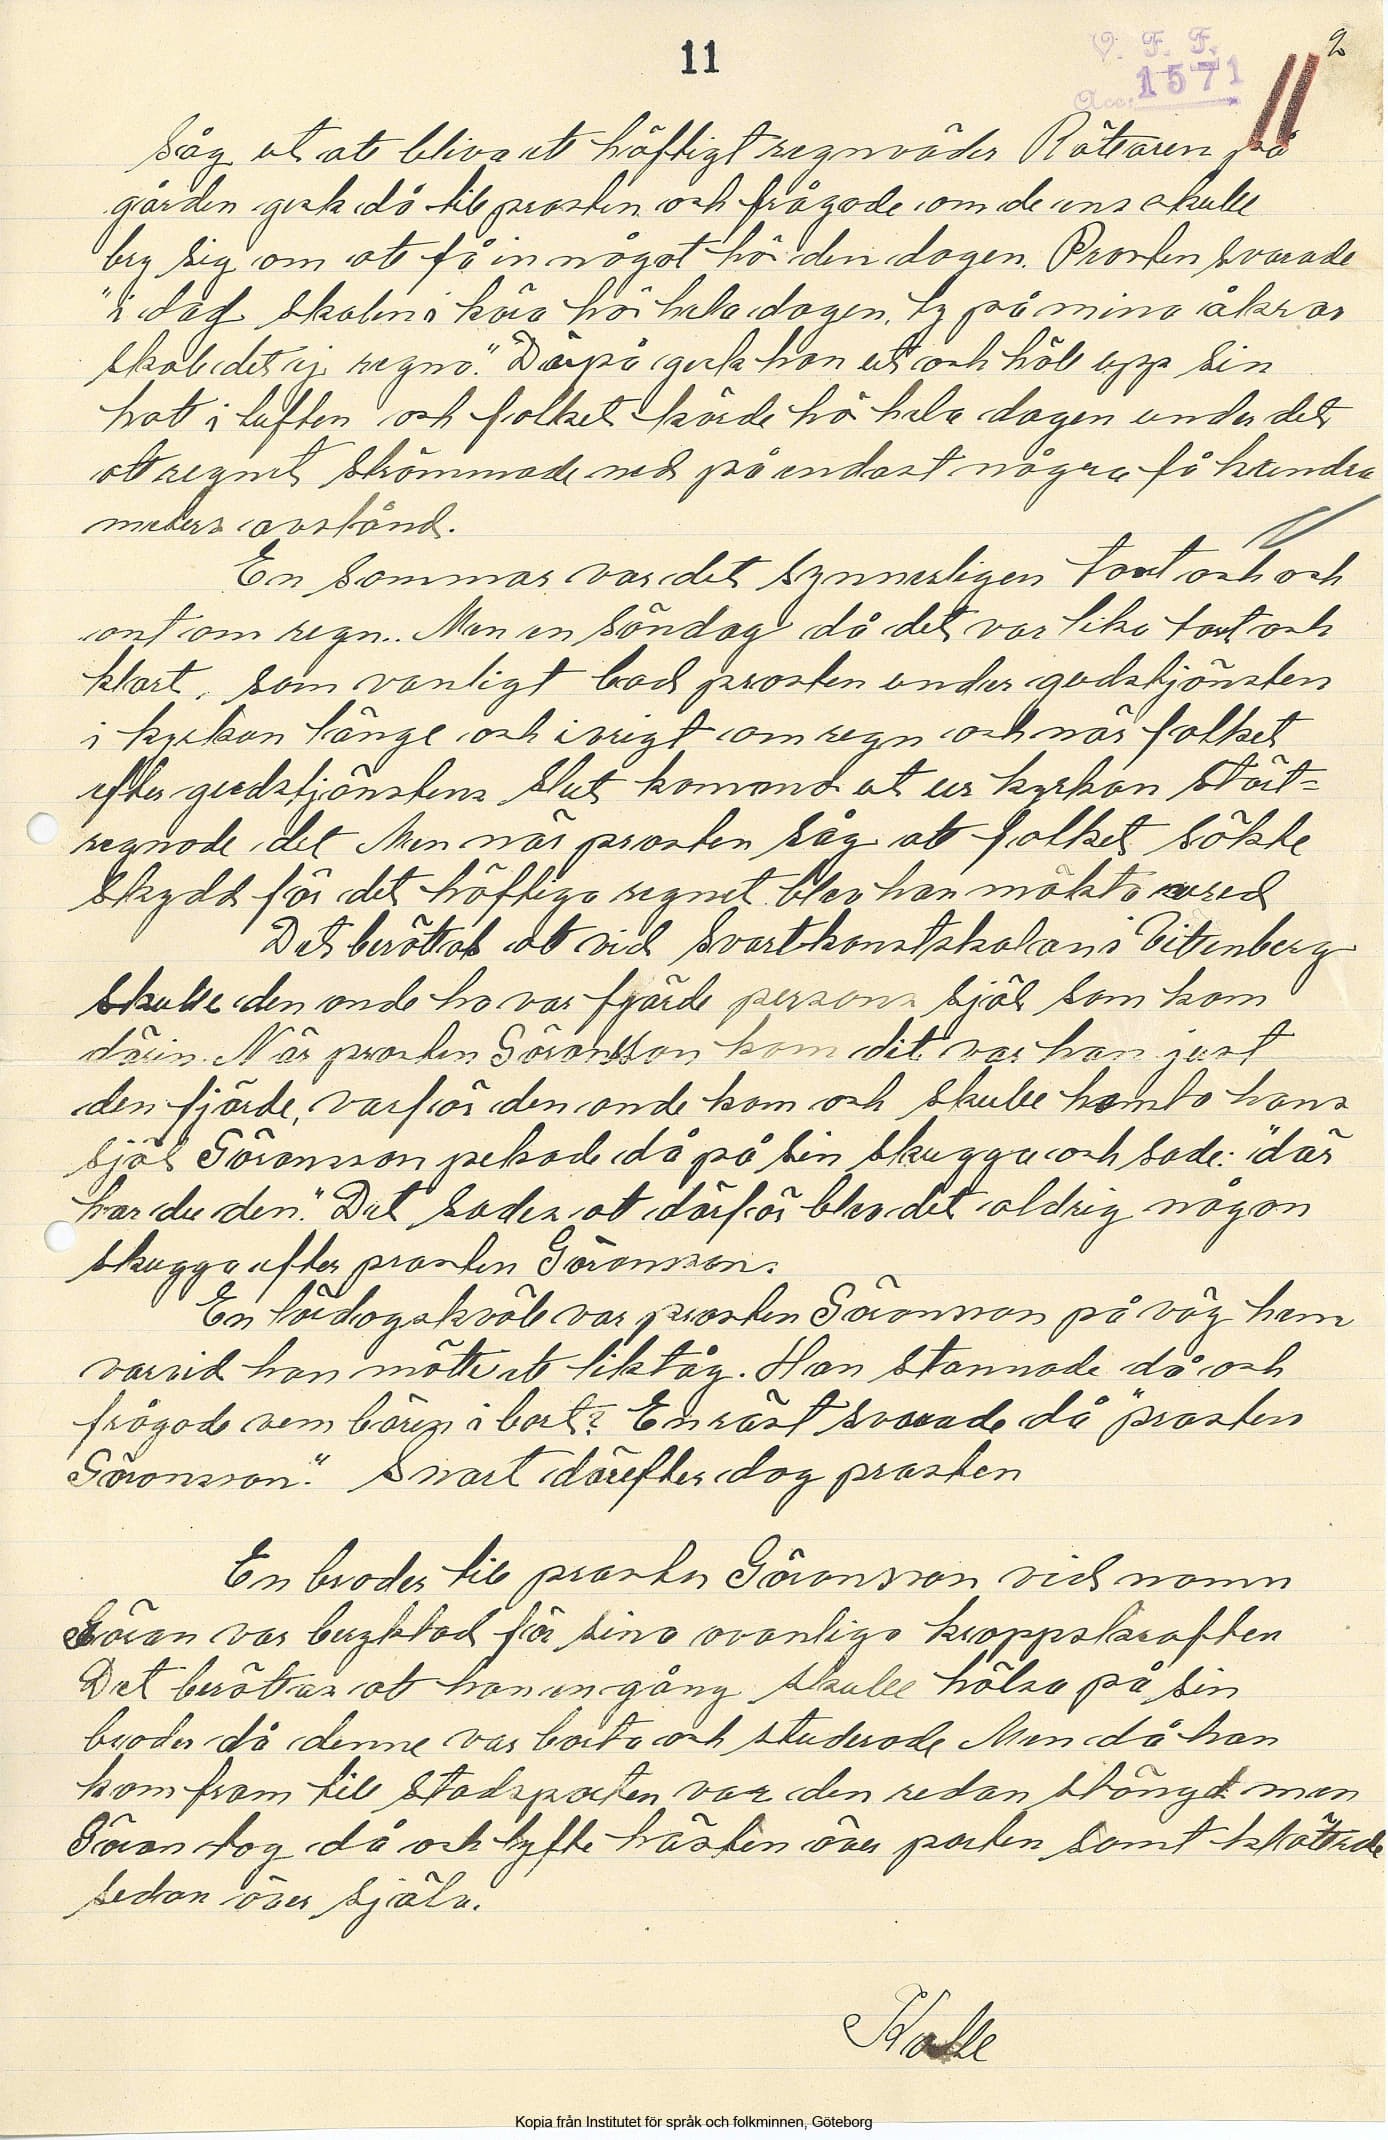 11
V. F. F.
Acc. 1571
2
såg ut att bliva ett häftigt regnväder Rättaren på
gården gick då till prosten och frågade om de ens skulle
bry sig om att få in något hö den dagen. Prosten svarade
"i dag skolen i köra hö hela dagen, ty på mina åkrar
skall det ej regna." Därpå gick han ut och höll upp sin
hatt i luften och folket körde hö hela dagen under det
att regnet strömmade ned på endast några få hundra
meters avstånd.
En sommar var det synnerligen tort och och
ont om regn. Men en söndag då det var lika tort och
klart, som vanligt bad prosten under gudstjänsten
i kyrkan länge och ivrigt om regn och när folket
efter gudstjänstens slut kommo ut ur kyrkan stört-
regnade det Men när prosten såg att folket sökte
skydd för det häftiga regnet blev han mäkta vred
Det berättas att vid svartkonstskolan i Vitenberg
skulle den onde ha var fjärde persons själ som kom
därin. När prosten Göransson kom dit var han just
den fjärde, varför den onde kom och skulle hämta hans
själ Göransson pekade då på sin skugga och sade: "där
har du den." Det sades att därför blev det aldrig någon
skugga efter prosten Göransson.
En lördagskväll var prosten Göransson på väg hem
varvid han mötte ett liktåg. Han stannade då och
frågade vem bären i bort? En röst svarade då "prosten
Göransson." Snart därefter dog prosten
En broder till prosten Göransson vid namn
Göran var beryktad för sina ovanliga kroppskrafter
Det berättas att han en gång skulle hälsa på sin
broder då denne var borta och studerade Men då han
kom fram till stadsporten var den redan stängt men
Göran tog då och lyfte hästen över porten samt
sedan över själv.
Kalle
Kopia från Institutet för språk och folkminnen, Göteborg